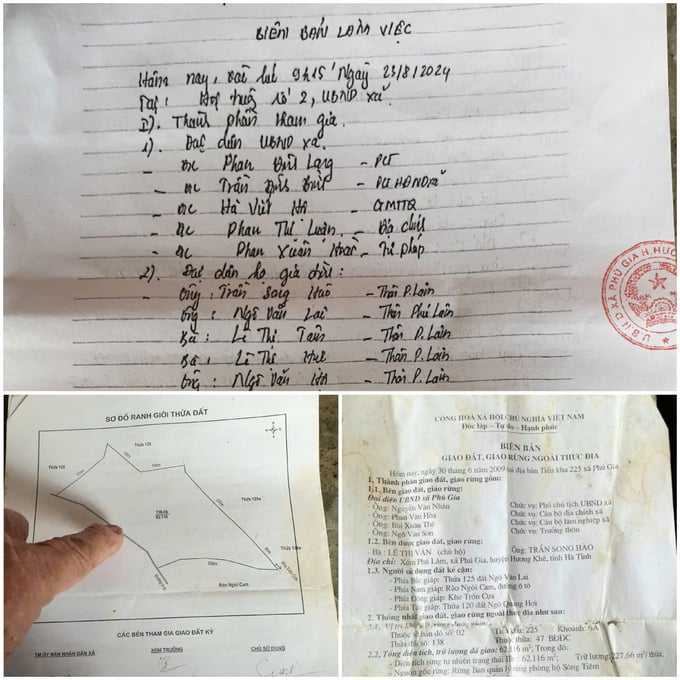 BIÊN BẢN LÀM VIỆC
Hôm nay, vào lúc 9h15' Ngày 23/8/2024
Tại: Hội trường số 2, UBND xã.
I). Thành phần tham gia.
1) Đại diện UBND xã.
- ĐC Phan - PCT
- ĐC Trần - PCT HĐND xã
- ĐC Hà Việt - CTMTTQ
- ĐC Phan Thị Luận - Địa chính
- ĐC Phan Xuân - Tư pháp
2) Đại diện hộ gia đình:
- Ông: Trần Song Hào - Thôn P. Lâm
- Ông: Ngô Văn Lai - Thôn Phú Lâm
- Bà: Lê Thị - Thôn P. Lâm
- Bà: Lê Thị - Thôn P. Lâm
- Ông: Ngô Văn - Thôn P. Lâm
U.B.N.D XÃ PHÚ GIA H. HƯƠ
SƠ ĐỒ RANH GIỚI THỬA ĐẤT
Thửa 125
Thửa 120
Thửa 125a
62.116
Rào Ngòi Cam
CÁC BÊN THAM GIA GIAO ĐẤT KÝ
TM.ỦY BAN NHÂN DÂN XÃ XÓM TRƯỞNG CHỦ SỬ DỤNG
CỘNG HOÀ XÃ HỘI CHỦ NGHĨA VIỆT NAM
Độc lập – Tự do – Hạnh phúc
BIÊN BẢN
GIAO ĐẤT, GIAO RỪNG NGOÀI THỰC ĐỊA
Hôm nay, ngày 30 tháng 6 năm 2009 tại địa bàn Tiểu khu 225 xã Phú Gia
1. Thành phần giao đất, giao rừng gồm:
1.1. Bên giao đất, giao rừng:
Đại diện UBND xã Phú Gia
- Ông: Nguyễn Văn Nhân Chức vụ: Phó chủ tịch UBND xã
- Ông: Phan Văn Hòa Chức vụ: Cán bộ địa chính xã
- Ông: Bùi Xuân Thế Chức vụ: Cán bộ lâm nghiệp xã
- Ông: Ngô Văn Sơn Chức vụ: Trưởng thôn
1.2. Bên được giao đất, giao rừng:
- Bà: LÊ THỊ VÂN (chủ hộ) Ông: TRẦN SONG HÀO
Địa chỉ: Xóm Phú Lâm, xã Phú Gia, huyện Hương Khê, tỉnh Hà Tĩnh
1.3. Người sử dụng đất kế cận:
- Phía Bắc giáp: Thửa 125 đất Ngô Văn Lai
- Phía Nam giáp: Rào Ngòi Cam, đường ô tô
- Phía Đông giáp: Khe Trốn Cựa
- Phía Tây giáp: Thửa 120 đất Ngô Quang Hợi
2. Thống nhất giao đất, giao rừng ngoài thực địa như sau:
Tiểu khu: 225 Khoảnh: 6A
Thuộc tờ bản đồ số: 02 Thuộc thửa: 47 BĐĐC
Thửa đất số: 138
2.2. Tổng diện tích, trữ lượng đã giao: 62.116 m²; Trong đó:
- Diện tích rừng tự nhiên trạng thái IIa : 62.116 m² Trữ lượng 227,66 m³/ thửa
- Nguồn gốc rừng: Rừng Ban quản lý rừng phòng hộ Sông Tiêm